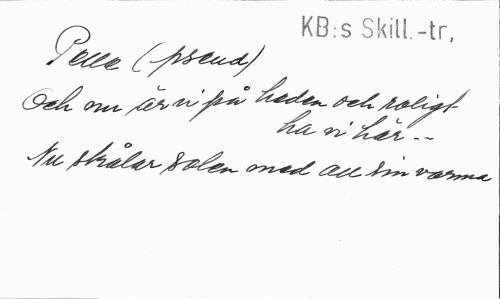 KB:s Skill.-tr,
Pelle (pseud)
Och nu är vi på heden och roligt
ha vi här --
Nu skålar solen med all sin varma